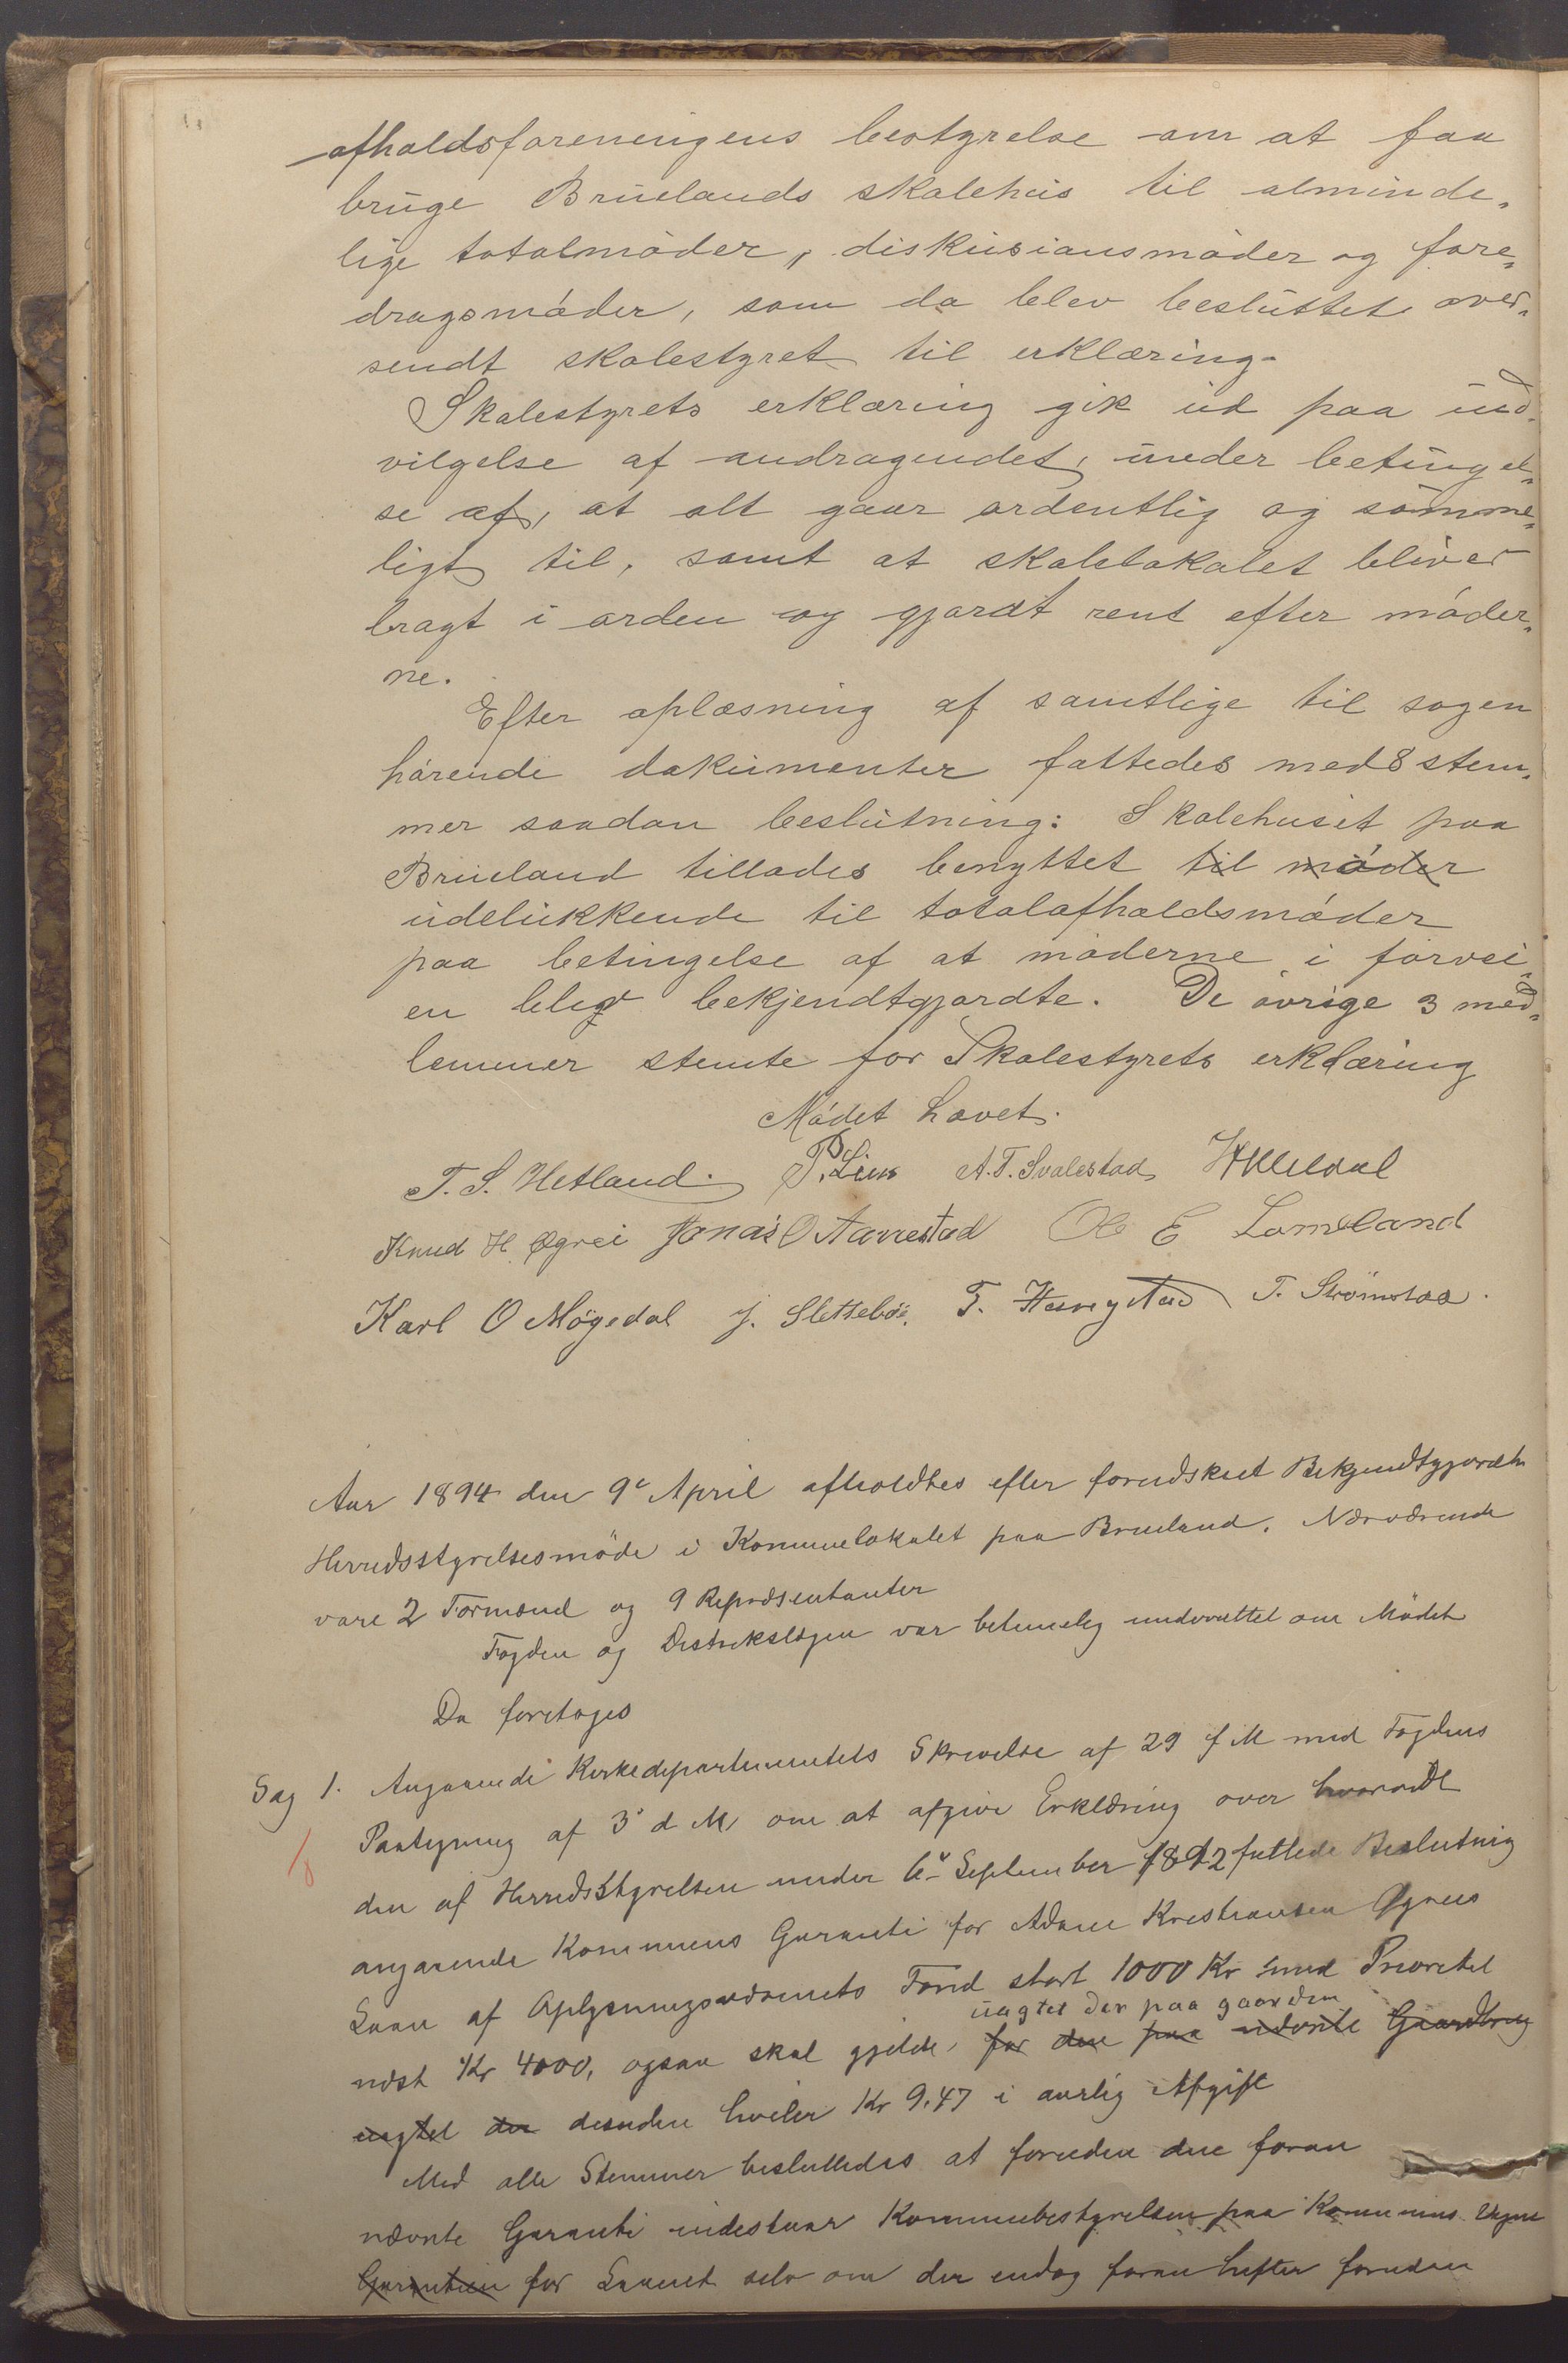 afholdsforeningens bestyrelse om at faa
bruge Bruelands skolehus til alminde„
lige totalmøder, diskusionsmøder og fore„
dragsmøder, som da blev besluttet over„
sendt skolestyret til erklæring.
Skolestyrets erklæring gik ud paa ind„
vilgelse af andragendet, under betingel„
se af, at alt gaar ordentlig og sømme„
ligt til, samt at skolelokalet bliver
bragt i orden og gjordt rent efter møder„
ne.
Efter oplæsning af samtlige til sagen
hørende dokumenter fattedes med 8 stem„
mer saadan beslutning: Skolehuset paa
Brueland tillades benyttet til møder
udelukkende til totalafholdsmøder
paa betingelse af at møderne i forvei„
en bliver bekjendtgjordte. De øvrige 3 med„
lemmer stemte for Skolestyrets erklæring
Mødet hævet.
T. S. Hetland. P. Lius A. T. Svalestad
Knud H. Øgrei Jonas O Aarrestad Ole E Lomeland
Karl O Møgedal J. Slettebø. T. Strømstad.
Aar 1894 den 9e April afholdtes efter forudskeet Bekjendtgjørelse
Herredsstyrelsesmøde i Kommunelokalet paa Brueland. Nærværende
vare 2 Formænd og 9 Repræsentanter
Fogden og Distrikslægen var betimelig underrettet om Mødet
Da foretoges
Sag 1. Angaaende Kirkedepartementets Skrivelse af 29 f M med Fogdens
Paategning af 3' d M om at afgive Erklæring over hvorvidt
den af Herredsstyrelsen under 6te September 1892 fattede Beslutning
angaaende Kommunens Garanti for Adam Kristiansen Øgreis
Laan af Oplysningsvæsenets Fond stort 1000 Kr med Prioritet
uagtet der paa gaarden
næst Kr 4000, ogsaa skal gjelde, for den paa nævnte Gaardbrug
uagtet der desuden hviler Kr 9.47 i aarlig Afgift
Med alle Stemmer besluttedes at foruden den foran
nævnte Garanti indestaar Kommunebestyrelsen paa Kommunens Vegne
Garantien for Laanet selv om der endog foran hefter foruden